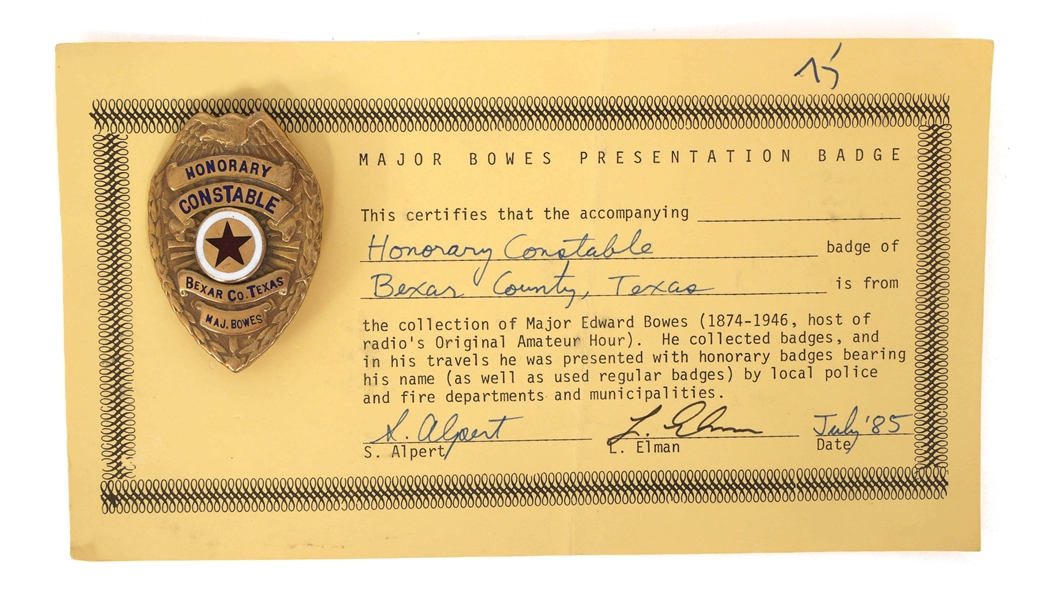 HONORARY
CONSTABLE
BEXAR CO. TEXAS
MAJ. BOWES
MAJOR BOWES PRESENTATION BADGE
This certifies that the accompanying
Honorary Constable badge of
Bexar County, Texas is from
the collection of Major Edward Bowes (1874-1946, host of
radio's Original Amateur Hour). He collected badges, and
in his travels he was presented with honorary badges bearing
his name (as well as used regular badges) by local police
and fire departments and municipalities.
S. Alpert L. Elman July '85
S. Alpert L. Elman Date